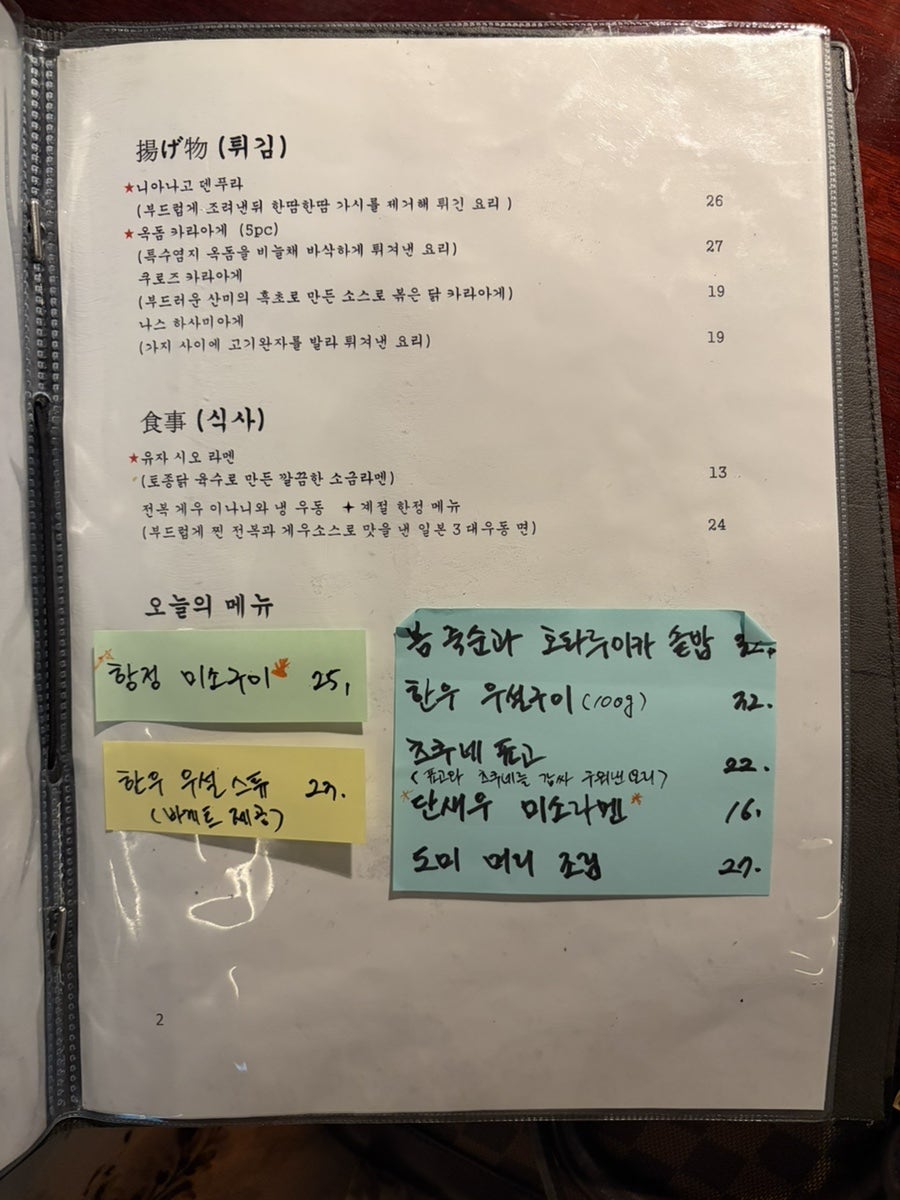 揚げ物 (튀김)
★니아나고 덴푸라
(부드럽게 조려낸뒤 한땀한땀 가시를 제거해 튀긴 요리 ) 26
★옥돔 카라아게 (5pc)
(특수염지 옥돔을 비늘채 바삭하게 튀겨낸 요리) 27
쿠로즈 카라아게
(부드러운 산미의 흑초로 만든 소스로 볶은 닭 카라아게) 19
나스 하사미아게
(가지 사이에 고기완자를 발라 튀겨낸 요리) 19
食事 (식사)
★유자 시오 라멘
(토종닭 육수로 만든 깔끔한 소금라멘) 13
전복 게우 이나니와 냉 우동 ✦계절 한정 메뉴
(부드럽게 찐 전복과 게우소스로 맛을 낸 일본 3대우동 면) 24
오늘의 메뉴
항정 미소구이 25,
한우 우설 스튜
(바게트 제공)
봄 죽순과 호타루이카 솥밥
한우 우설구이 (100g) 32.
즈쿠네 표고 22.
(표고와 즈쿠네를 감싸 구워낸 요리)
단새우 미소라멘 16.
도미 머리 조림 27.
2